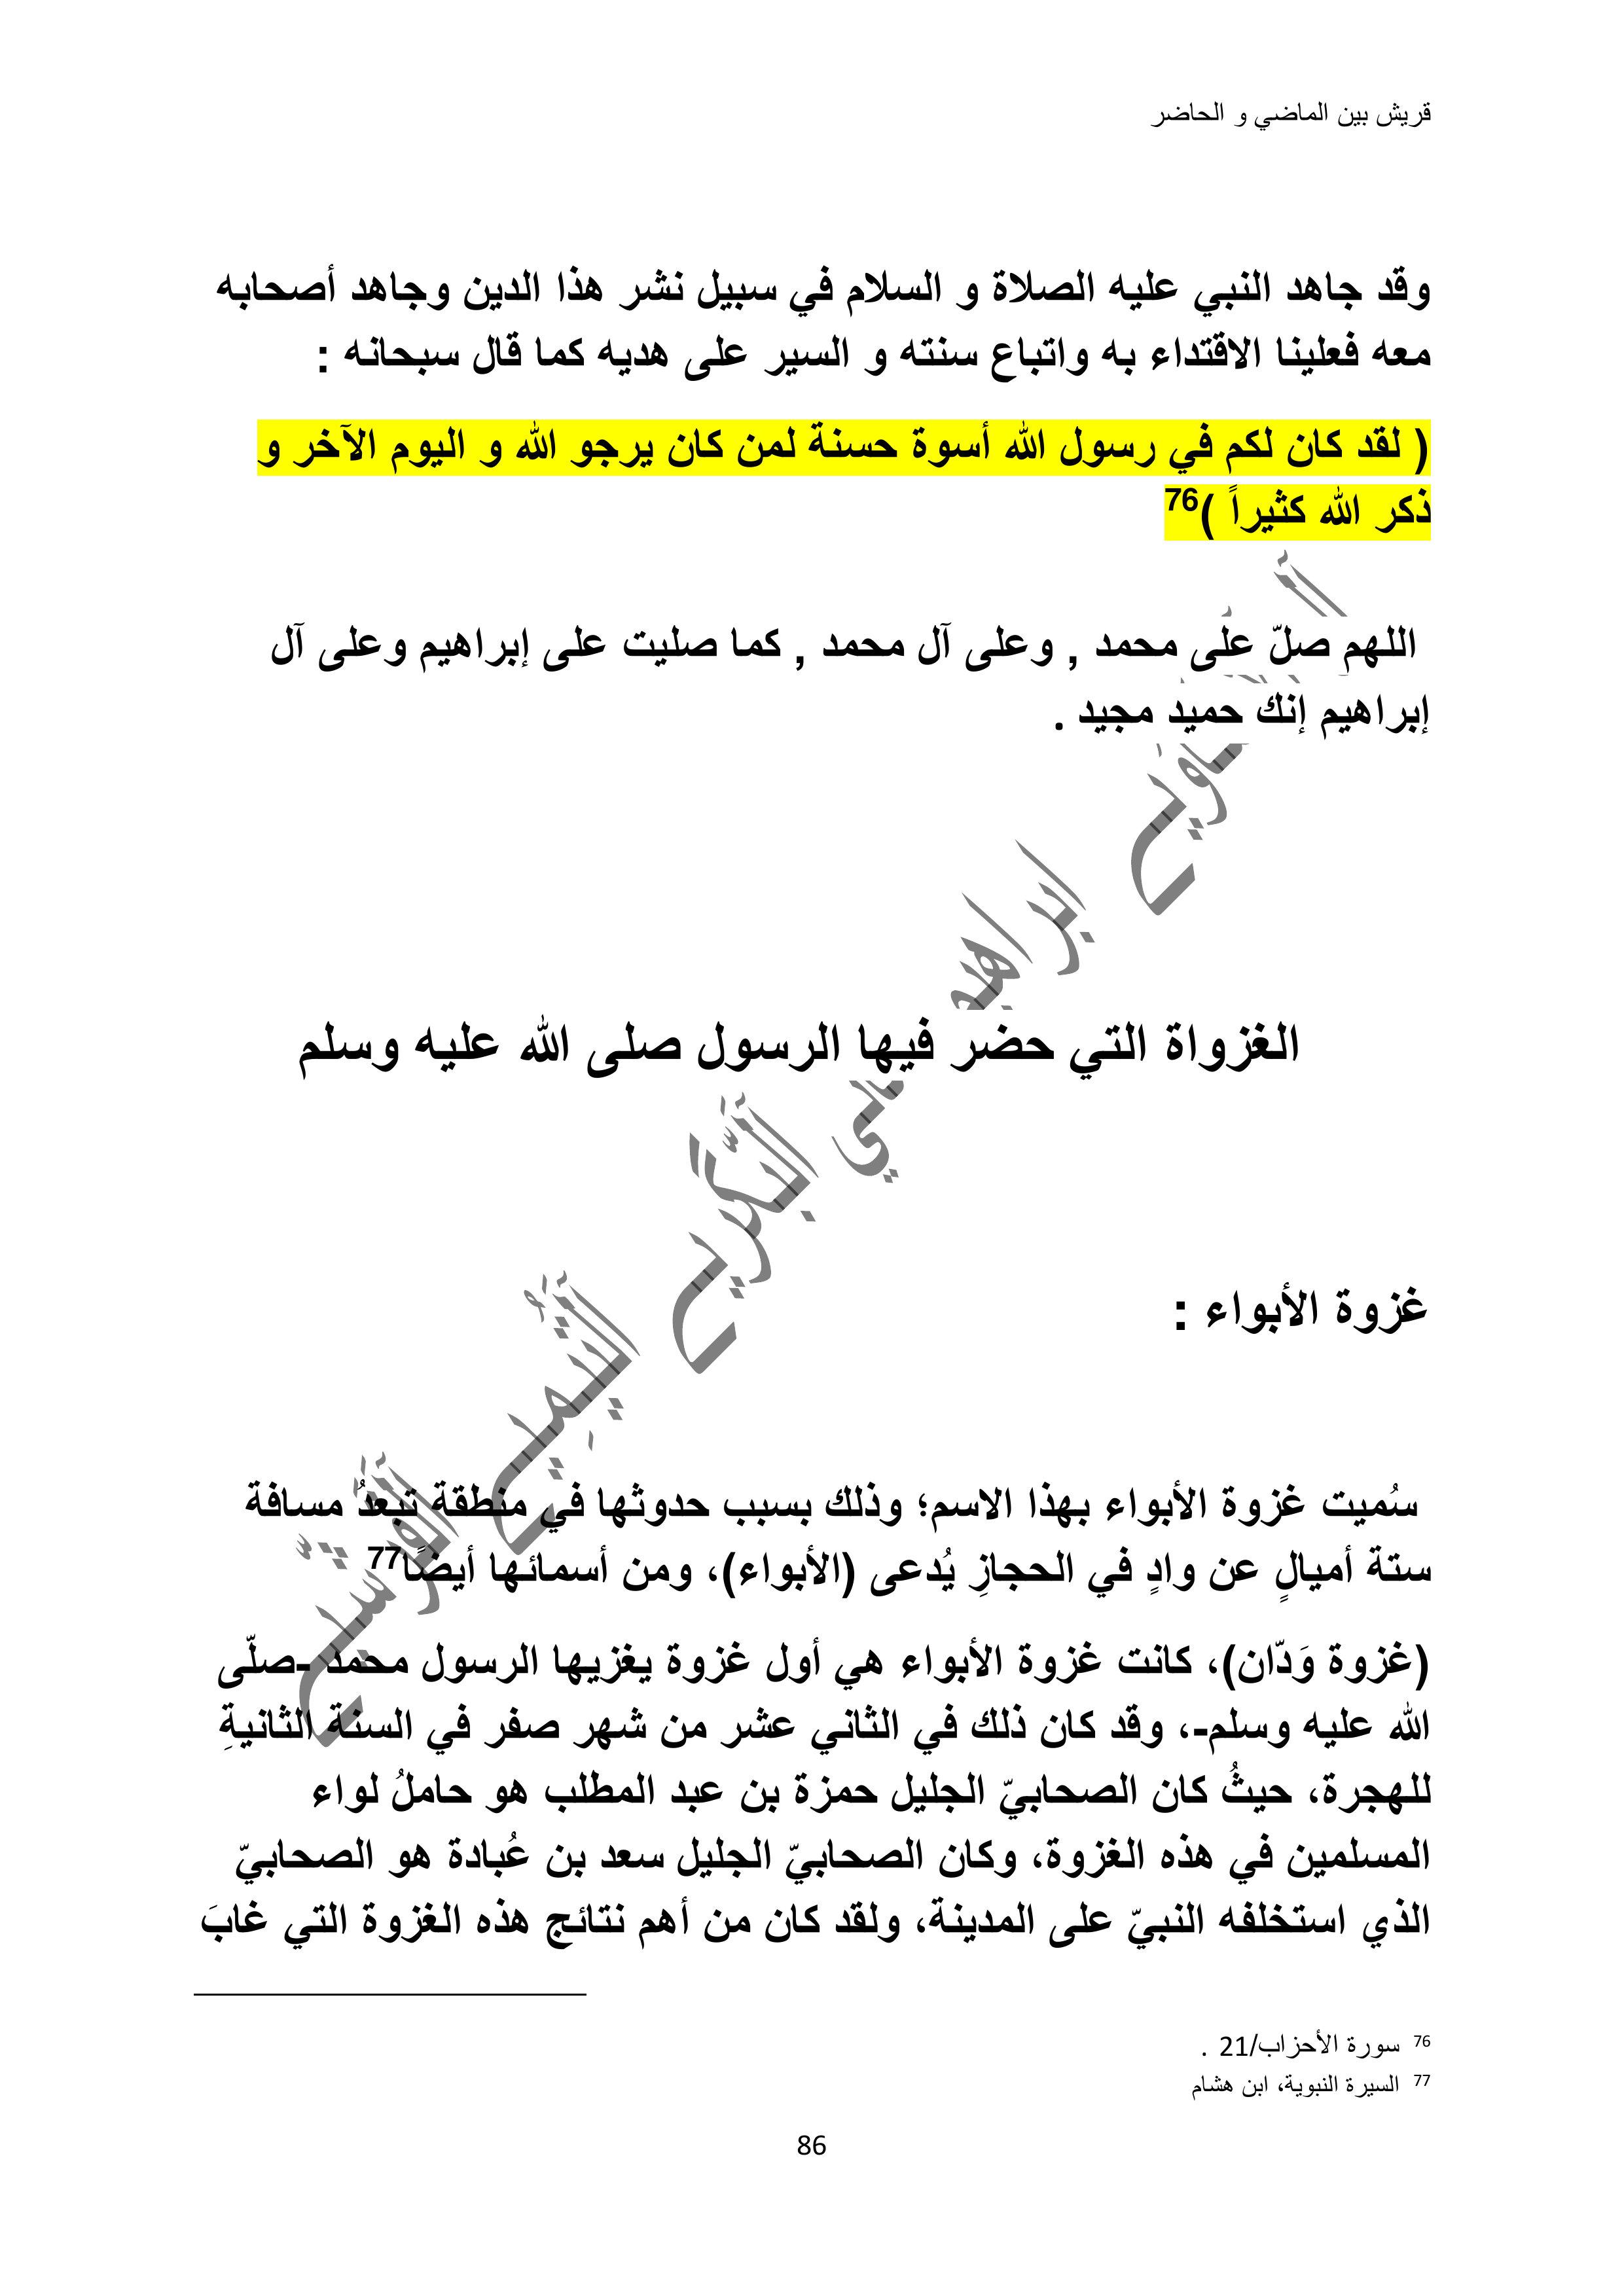 قريش بين الماضي و الحاضر
وقد جاهد النبي عليه الصلاة و السلام في سبيل نشر هذا الدين وجاهد أصحابه
معه فعلينا الاقتداء به واتباع سنته و السير على هديه كما قال سبحانه :
( لقد كان لكم في رسول الله أسوة حسنة لمن كان يرجو الله و اليوم الآخر و
ذكر الله كثيراً )76
اللهم صلّ على محمد , وعلى آل محمد , كما صليت على إبراهيم وعلى آل
إبراهيم إنك حميد مجيد .
الغزواة التي حضر فيها الرسول صلى الله عليه وسلم
غزوة الأبواء :
سُميت غزوة الأبواء بهذا الاسم؛ وذلك بسبب حدوثها في منطقة تبعدُ مسافة
ستة أميالٍ عن وادٍ في الحجازِ يُدعى (الأبواء)، ومن أسمائها أيضًا77
(غزوة وَدّان)، كانت غزوة الأبواء هي أول غزوة يغزيها الرسول محمد -صلّى
الله عليه وسلم-، وقد كان ذلك في الثاني عشر من شهر صفر في السنة الثانيةِ
للهجرة، حيثُ كان الصحابيّ الجليل حمزة بن عبد المطلب هو حاملُ لواء
المسلمين في هذه الغزوة، وكان الصحابيّ الجليل سعد بن عُبادة هو الصحابيّ
الذي استخلفه النبيّ على المدينة، ولقد كان من أهم نتائج هذه الغزوة التي غابَ
76 سورة الأحزاب/21 .
77 السيرة النبوية، ابن هشام
86